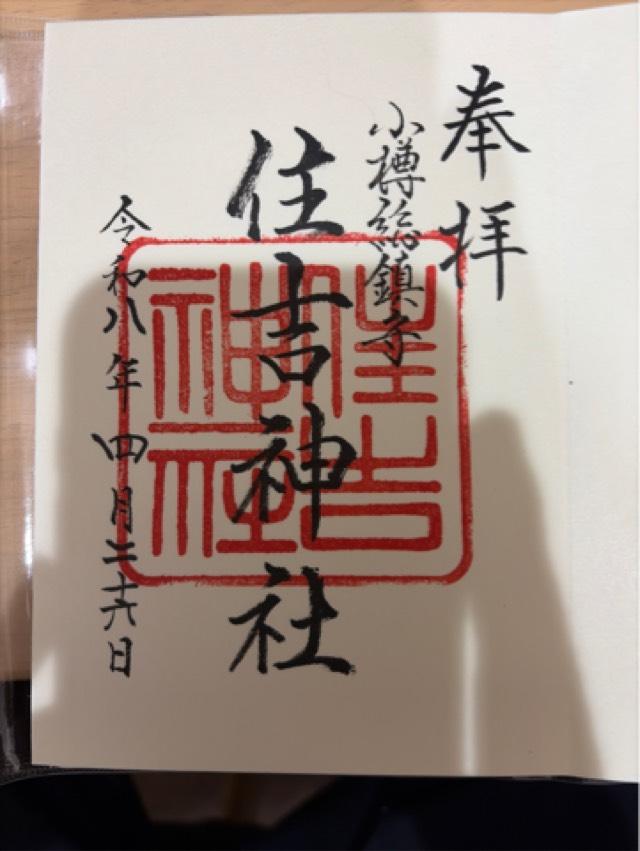 奉拝
小樽総鎮守
住吉神社
令和八年四月二十六日
住吉神社